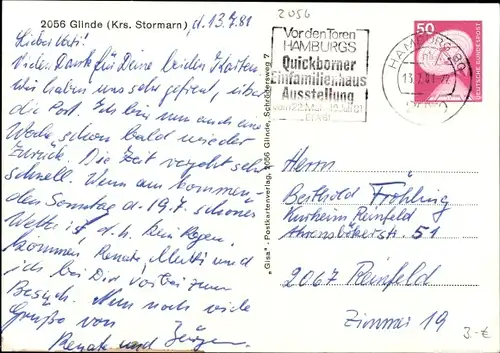 2056 Glinde (Krs. Stormarn), d. 13.7.81
Lieber Vati!
Vielen Dank für Deine beiden Karten.
Wir haben uns sehr gefreut, über
die Post. Ich bin nun auch eine
Woche schon bald wieder
zurück. Die Zeit vergeht sehr
schnell. Wenn am kommen-
den Sonntag d. 19.7. schönes
Wetter ist d.h. kein Regen,
kommen Renate, Mutti und
ich bei Dir vorbei zum
Besuch. Nun noch viele
Grüße von
Renate und Jürgen
"Gisa" - Postkartenverlag, 2056 Glinde, Schröderweg 7
2056
Vor den Toren
HAMBURGS
Quickborner
Einfamilienhaus
Ausstellung
HAMBURG 80
13.7.81
50
DEUTSCHE BUNDESPOST
Herrn
Berthold Fröhling
Kurheim Reinfeld
Ahrensbökerstr. 51
2067 Reinfeld
Zimmer 19
3.-€